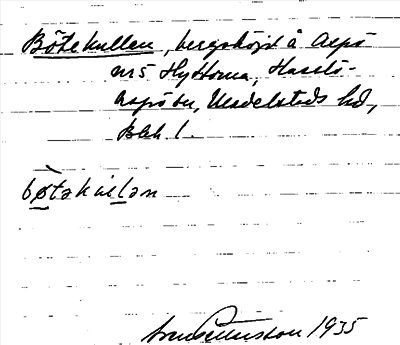 Bötekullen, bergshöjd å Aspö
m5 Hyttorna, Hasslö-
Aspö sn, Medelstads hd,
Blek l.
bøtakulan
1935